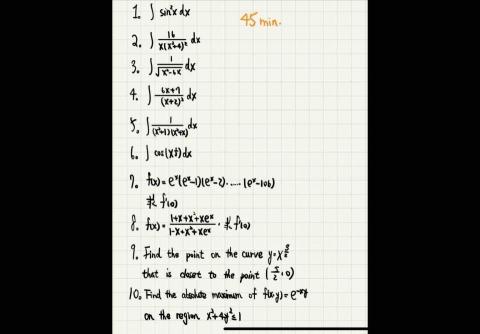 1. ∫ sin²x dx
45 min.
2. ∫ 16/(x(x²+4)²) dx
3. ∫ 1/√(x²-6x) dx
4. ∫ (6x+7)/(x+2)² dx
5. ∫ 1/((x²+1)(x²+x)) dx
6. ∫ cos(√x) dx
7. f(x)=eˣ(eˣ-1)(eˣ-2)·····(eˣ-106)
求 f'(0)
8. f(x)= (1+x+x²+xeˣ)/(1-x+x²+xeˣ), 求 f'(0)
9. Find the point on the curve y=x^(3/2)
that is closet to the point (5/2, 0)
10. Find the absolute maximum of f(x,y)=e^(-xy)
on the region x²+4y²≤1